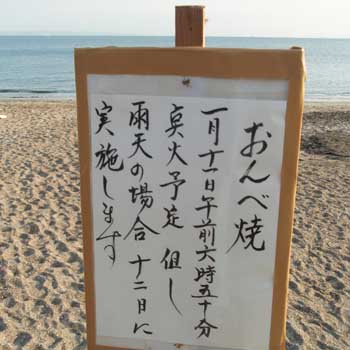 おんべ焼
一月十一日午前六時五十分
点火予定 但し
雨天の場合 十二日に
実施します